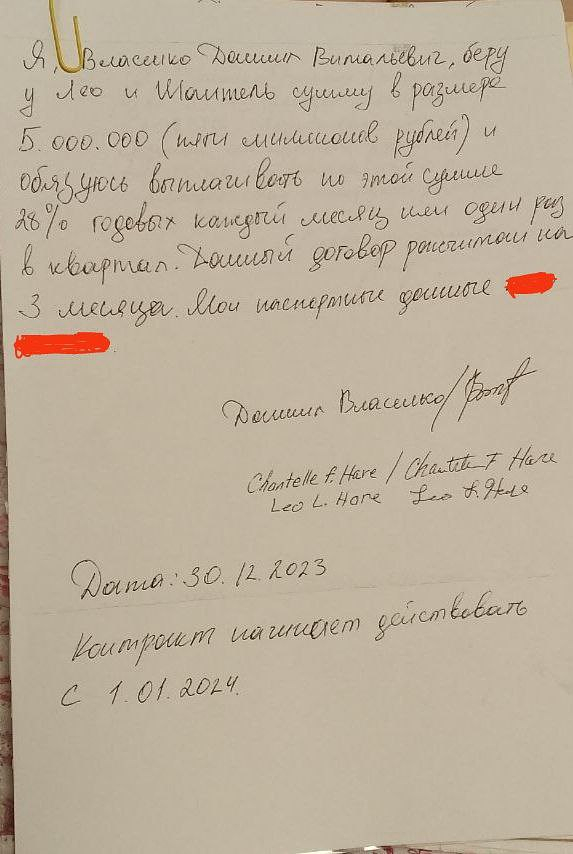 Я, Власенко Даниил Витальевич, беру
у Лео и Шантель сумму в размере
5.000.000 (пяти миллионов рублей) и
обязуюсь выплачивать по этой сумме
28% годовых каждый месяц или один раз
в квартал. Данный договор рассчитан на
3 месяца. Мои паспортные данные
Даниил Власенко/
Chantelle F. Hare / Chantelle F Hare
Leo L. Hare Leo L. Hare
Дата: 30.12.2023
Контракт начинает действовать
с 1.01.2024.